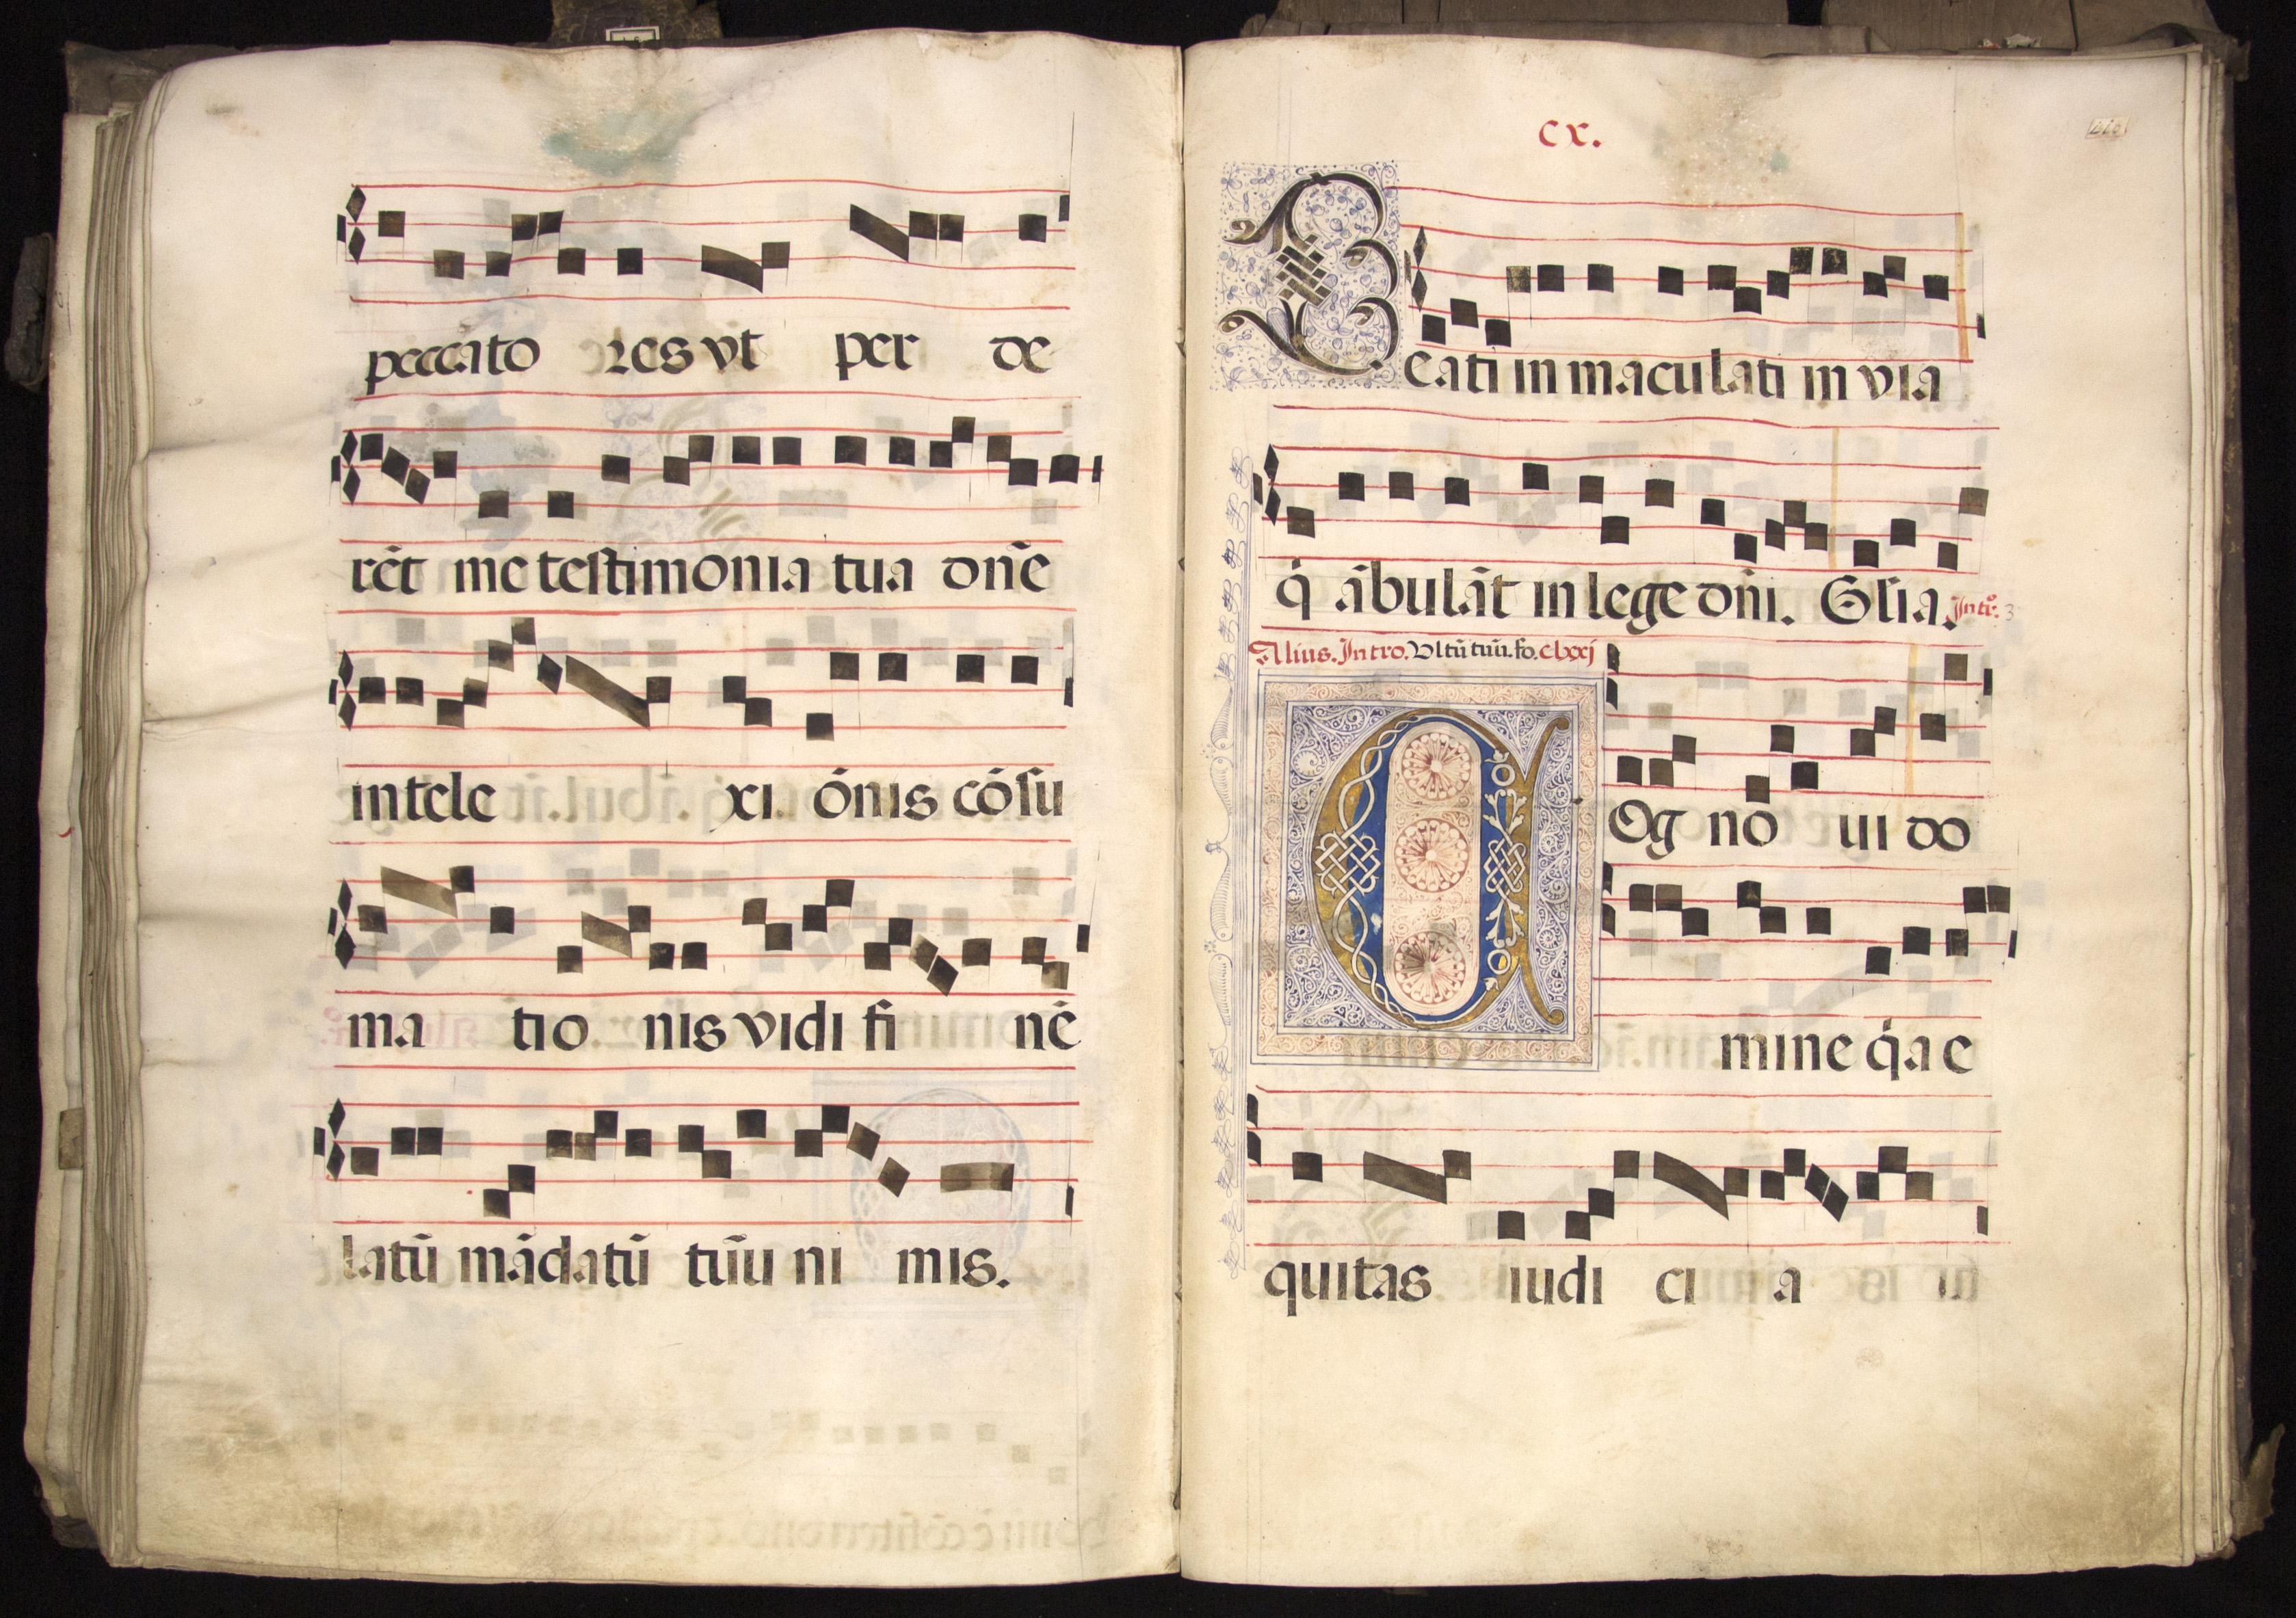 peccato res vt per de
rēt me testimonia tua dn̄e
intele xi. ōnis cōsu
ma tio nis vidi fi nē
latū mādatū tūu ni mis.
cx.
Beati in maculati in via
q̇ ābulāt in lege dn̄i. Gl̄ia. Intr̊: 3
Alius. Intro. Vltū tuū. fo. clxxj
Cog no ui do
mine q̇a e
quitas iudi ci a